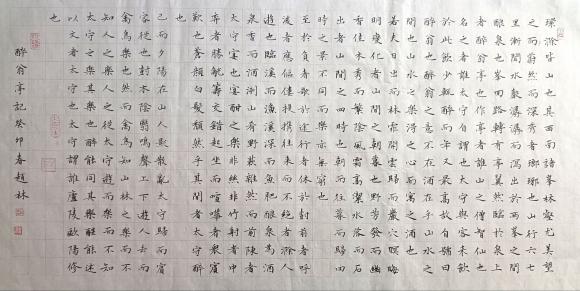 環滁皆山也其西南諸峯林壑尤美望
之蔚然而深秀者瑯琊也山行六七
里漸聞水聲潺潺而瀉出於兩峯之間
者釀泉也峯回路轉有亭翼然臨於泉上
者醉翁亭也作亭者誰山之僧智仙也
名之者誰太守自謂也太守與客來飲
於此飲少輒醉而年又最高故自號曰
醉翁也醉翁之意不在酒在乎山水之
間也山水之樂得之心而寓之酒也
若夫日出而林霏開雲歸而巖穴暝晦
明變化者山間之朝暮也野芳發而幽
香佳木秀而繁陰風霜高潔水落而石
出者山間之四時也朝而往暮而歸四
時之景不同而樂亦無窮也
至於負者歌於途行者休於樹前者呼
後者應傴僂提攜往來而不絕者滁人
遊也臨溪而漁溪深而魚肥釀泉爲酒
泉香而酒洌山肴野蔌雜然而前陳者
太守宴也宴酣之樂非絲非竹射者中
弈者勝觥籌交錯起坐而諠譁者衆賓
歡也蒼顏白髮頹然乎其間者太守醉
也
已而夕陽在山人影散亂太守歸而賓
客從也樹林陰翳鳴聲上下遊人去而
禽鳥樂也然而禽鳥知山林之樂而不
知人之樂人知從太守遊而樂而不知
太守之樂其樂也醉能同其樂醒能述
以文者太守也太守謂誰廬陵歐陽修
也
醉翁亭記癸卯春趙林